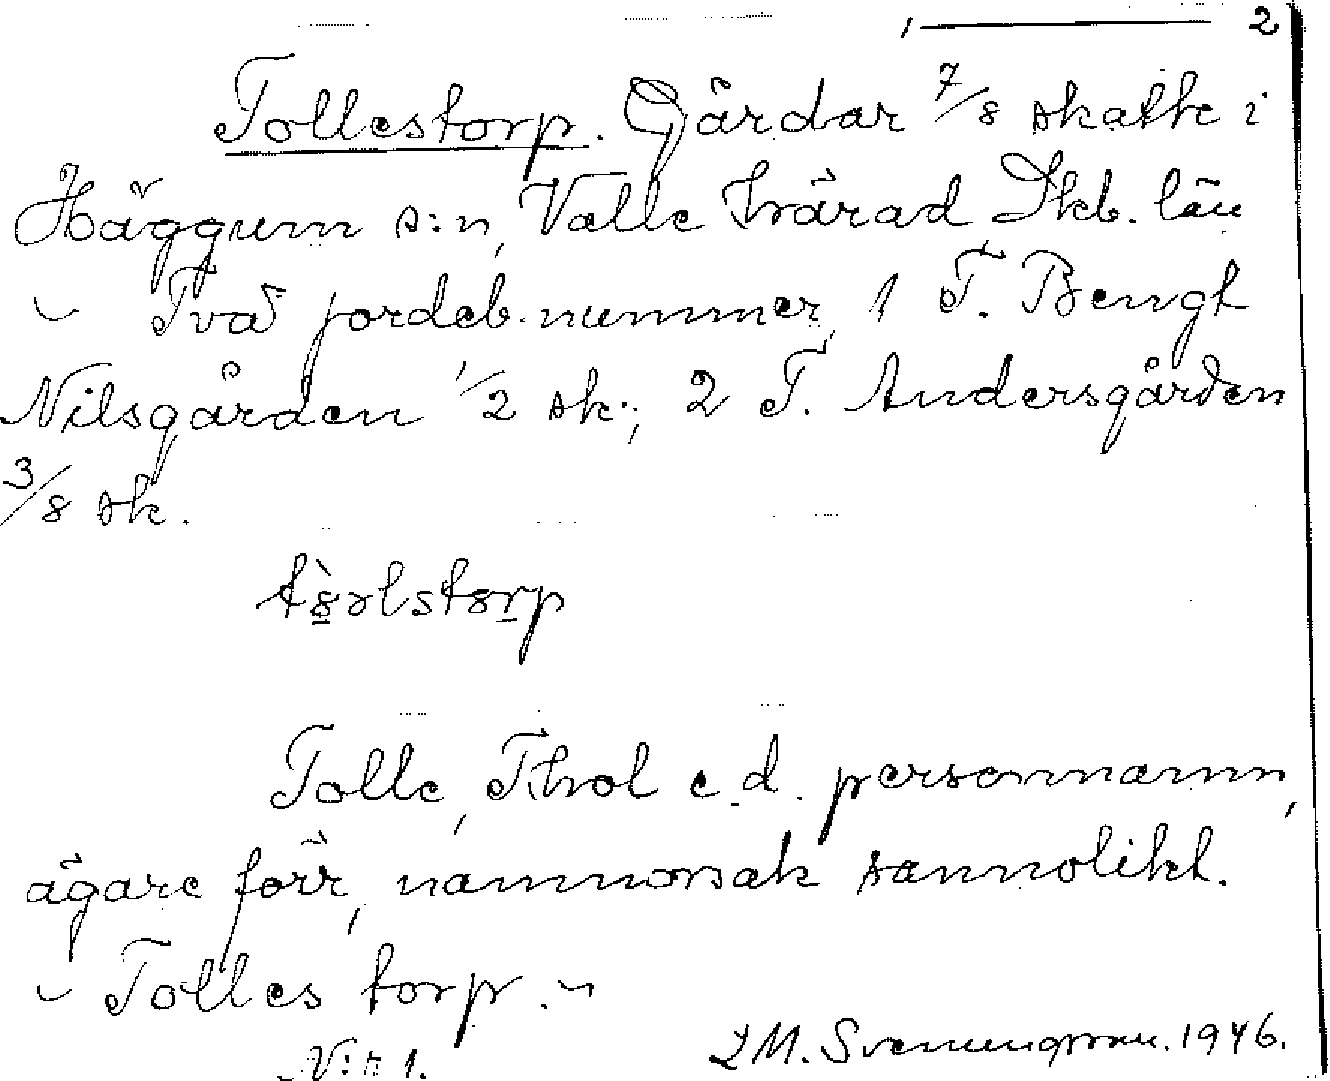 2
Tollestorp. Gårdar 7/8 skatte i
Häggum s:n, Valle härad Skb. län
- Två jordeb. nummer, 1 T. Bengt
Nilsgården 1/2 sk.; 2 T. Andersgården
3/8 sk.
Tolle, Thol e.d. personnamn,
ägare förr, namnorsak sannolikt.
- Tolles torp. -
N:r 1.
1946.